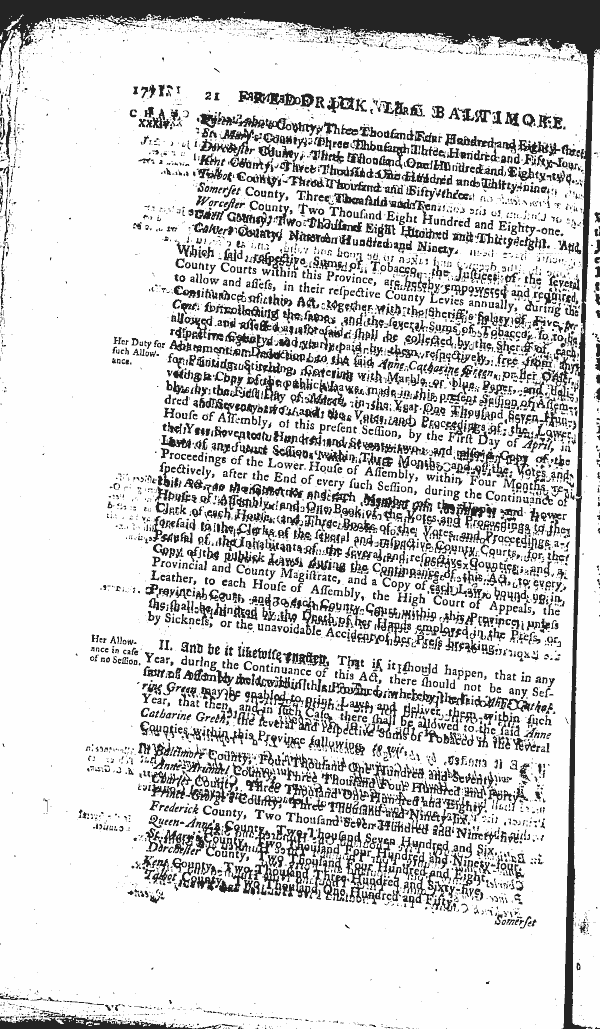 21 FREDERICK, BALTIMORE.
CHAP.
XXIV.
County, Three Thousand Four Hundred and Eighty-three.
St. Mary's County, Three Thousand Three Hundred and Fifty-four.
Dorchester County, Three Thousand One Hundred and Eighty-two.
Kent County, Three Thousand One Hundred and Thirty-nine.
Talbot County, Three Thousand and Fifty-three.
Somerset County, Three Thousand and Ten.
Worcester County, Two Thousand Eight Hundred and Eighty-one.
County, Two Thousand Eight Hundred and Thirty-eight. And,
Calvert County, Hundred and Ninety.
Which said respective Sums of Tobacco, the Justices of the several
County Courts within this Province, are hereby empowered and required,
to allow and assess, in their respective County Levies annually, during the
Continuance of this Act, together with the Sheriff's Salary of
Cent. for collecting the same; and the several Sums of Tobacco, so to be
allowed and assessed as aforesaid, shall be collected by the Sheriff of each
respective County, and yearly paid by them respectively, free from any
Her Duty for
such Allow-
ance.
to the said Anne Catharine Green, or her Order,
for Printing, Stitching, Covering with Marble or blue Paper, and deli-
vering a Copy of the publick Laws made in this present Session of Assem-
bly, by the Day of in the Year One Thousand Seven Hun-
dred and and the Votes and Proceedings of the Lower
House of Assembly, of this present Session, by the First Day of April, in
the Year Seventeen Hundred and and also a Copy of the
Laws of any future Session, within Three Months, and of the Votes and
Proceedings of the Lower House of Assembly, within Four Months re-
spectively, after the End of every such Session, during the Continuance of
this Act, to the and each Member of the Upper and Lower
Houses of Assembly, and One Book of the Votes and Proceedings to the
Clerk of each House, and Three Books of the Votes and Proceedings a-
foresaid to the Clerks of the several and respective County Courts, for the
Perusal of the Inhabitants of the several and respective Counties; and a
Copy of the publick Laws, during the Continuance of this Act, to every
Provincial and County Magistrate, and a Copy of each Law, bound up in
Leather, to each House of Assembly, the High Court of Appeals, the
Provincial Court, and to each County Court within this Province; unless
she shall be hindred by the Death of her Hands employed in the Press, or
by Sickness, or the unavoidable Accident of her Press breaking.
Her Allow-
ance in case
of no Session.
II. And be it likewise enacted, That if it should happen, that in any
Year, during the Continuance of this Act, there should not be any Ses-
sion of Assembly held within this Province, whereby the said Anne Catha-
rine Green may be enabled to print Laws and deliver them within such
Year, that then, and in such Case, there shall be allowed to the said Anne
Catharine Green, the several and respective Sums of Tobacco in the several
Counties within this Province following, to wit,
In Baltimore County, Four Thousand One Hundred and Seventy.
Anne-Arundel County, Three Thousand Four Hundred and Forty.
Charles County, Three Thousand One Hundred and Eighty.
Prince George's County, Three Thousand and Ninety-six.
Frederick County, Two Thousand Seven Hundred and Ninety-five.
Queen-Anne's County, Two Thousand Seven Hundred and Six.
St. Mary's County, Two Thousand Four Hundred and Ninety-four.
Dorchester County, Two Thousand Four Hundred and Eight.
Kent County, Two Thousand Three Hundred and Sixty-five.
Talbot County, Two Thousand One Hundred and Fifty
Somerset